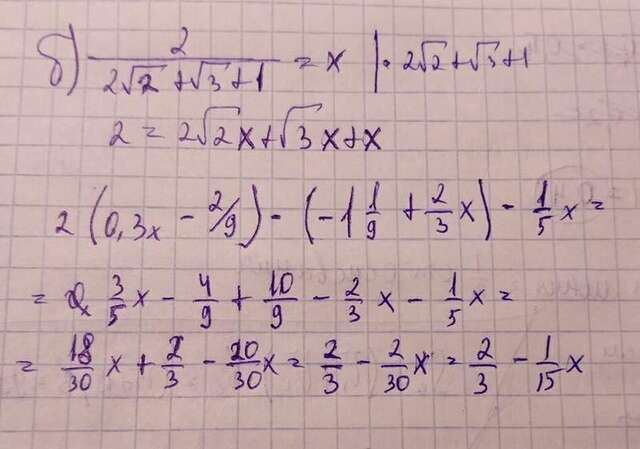 б) 2/(2√2 + √3 + 1) = x | · 2√2 + √3 + 1
2 = 2√2 x + √3 x + x
2 (0,3x - 2/9) - (-1 1/9 + 2/3 x) - 1/5 x =
= 3/5 x - 4/9 + 10/9 - 2/3 x - 1/5 x =
= 18/30 x + 2/3 - 20/30 x = 2/3 - 2/30 x = 2/3 - 1/15 x